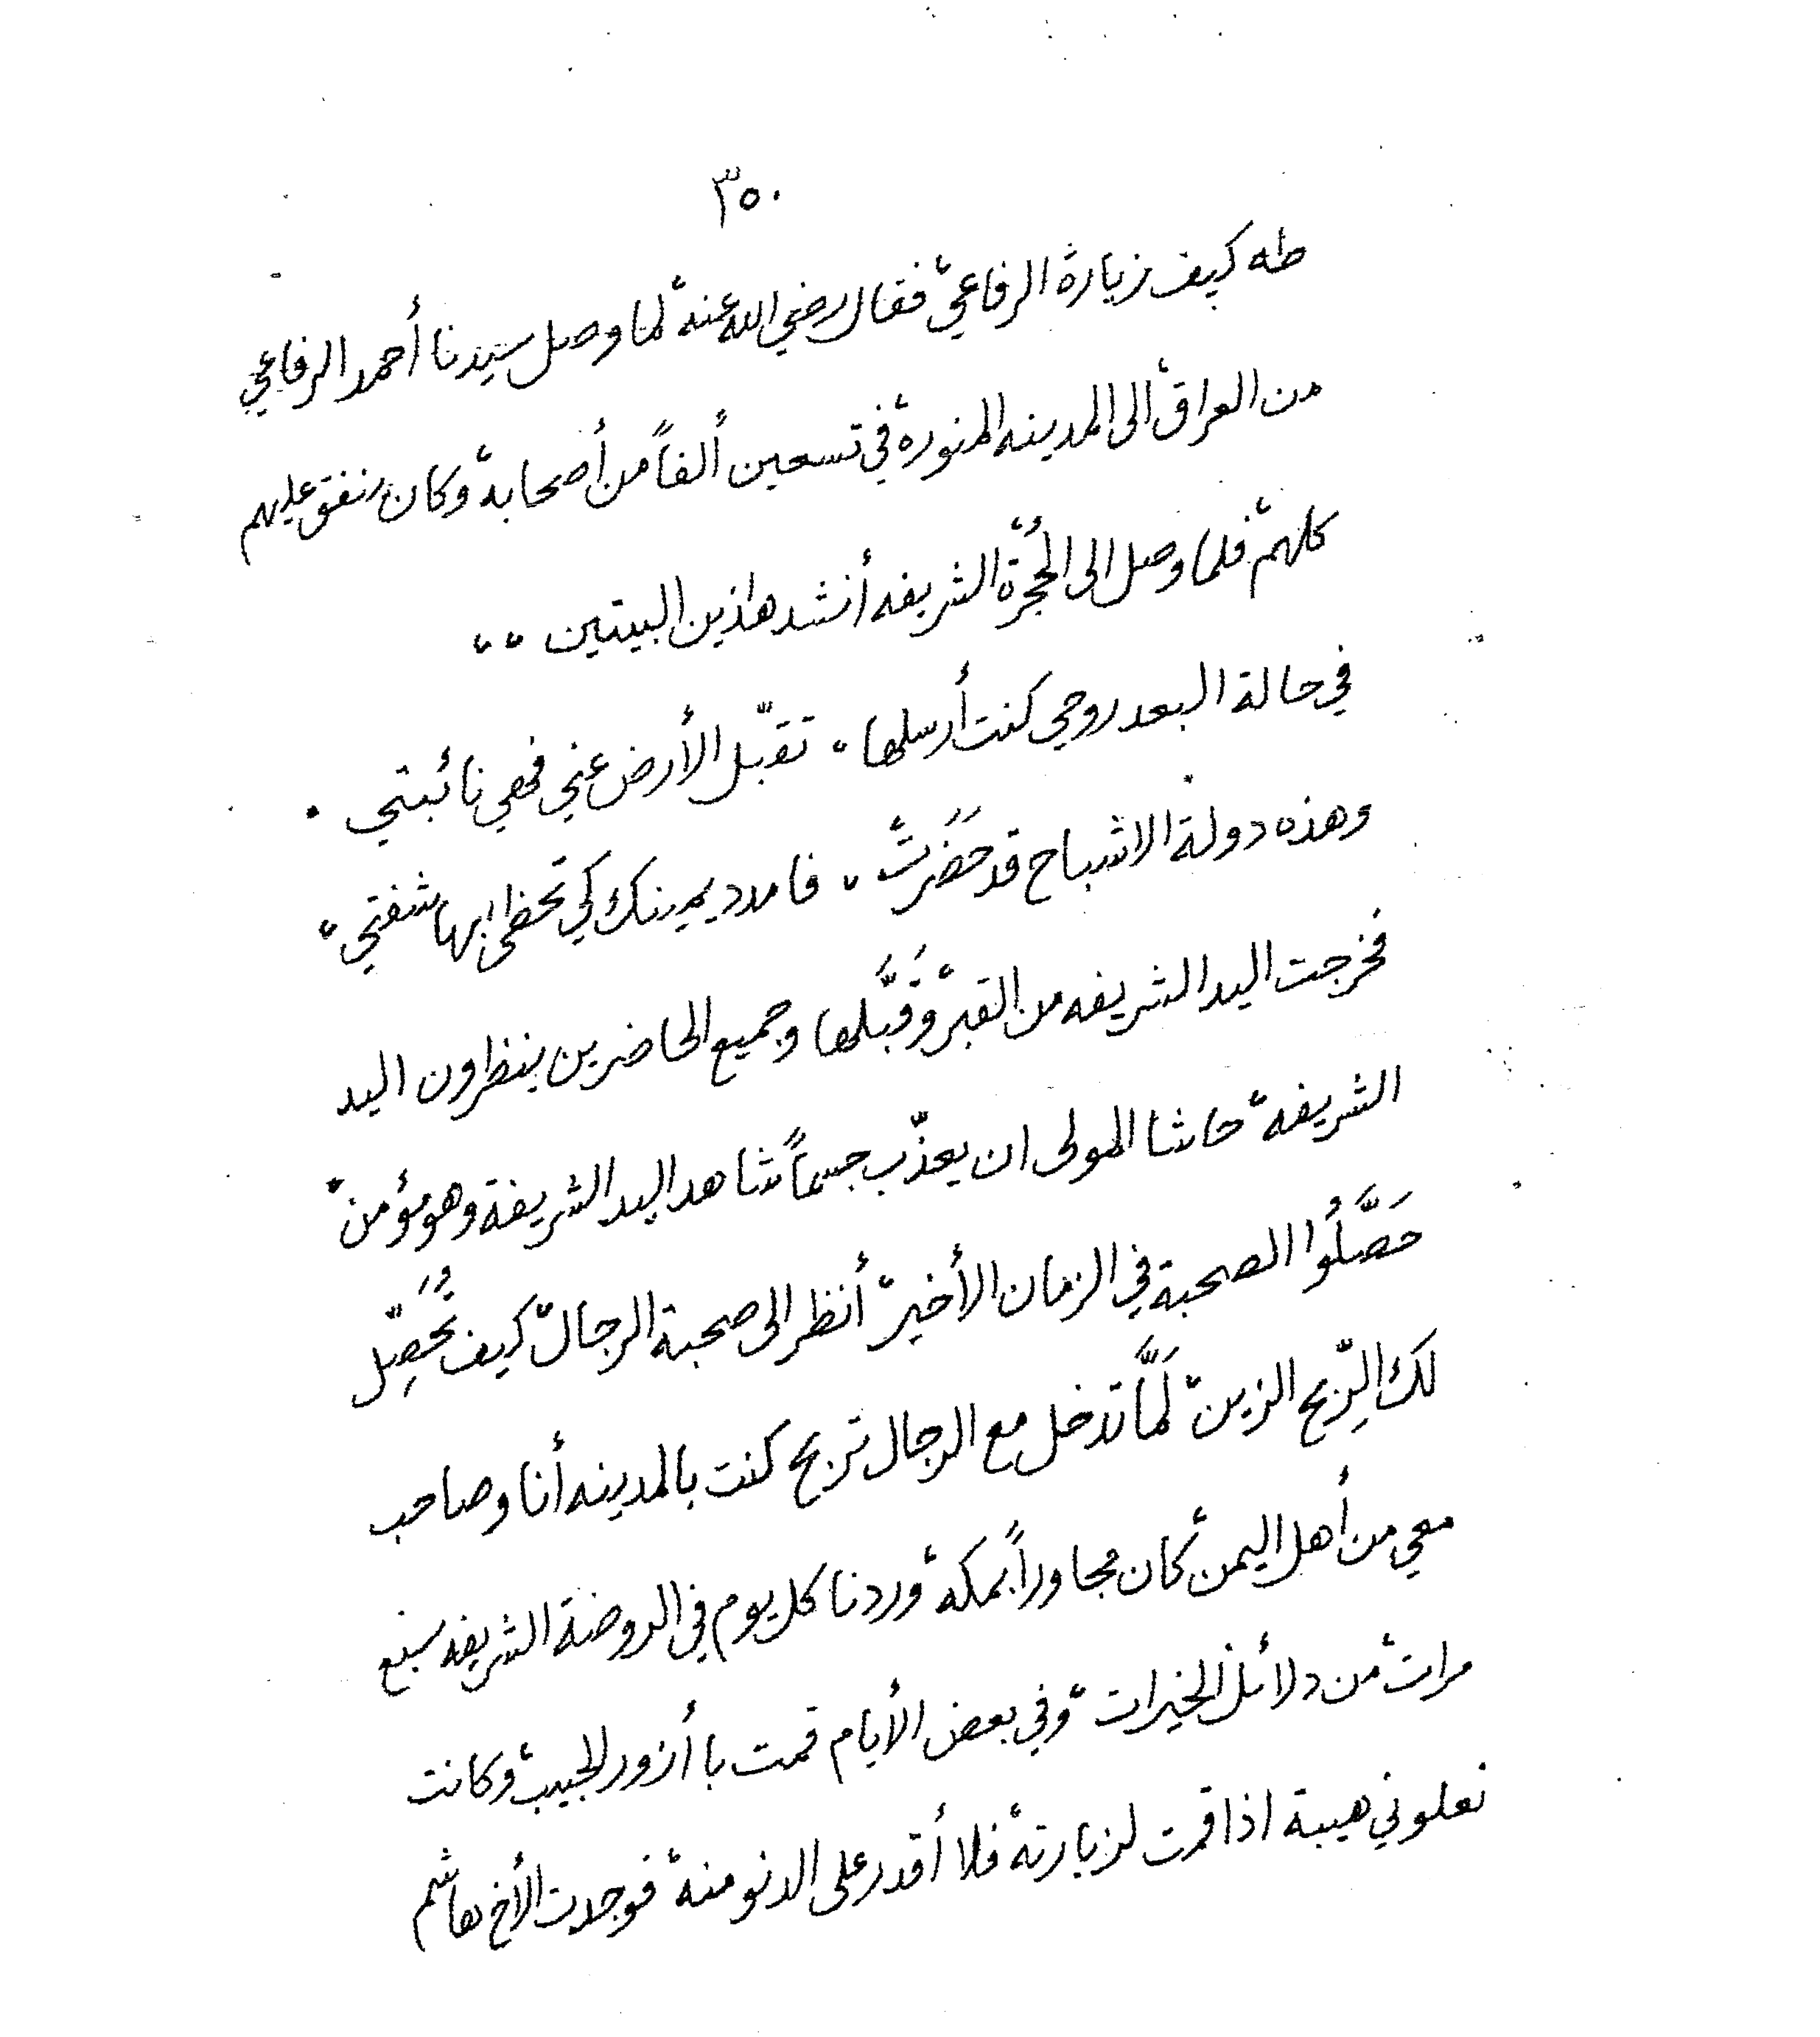 ٣٥٠
طه كيف زيارة الرفاعي، فقال رضي الله عنه، لما وصل سيدنا أحمد الرفاعي
من العراق، الى المدينه المنورة، في تسعين ألفاً من أصحابه، وكان ينفق عليهم
كلهم، فلما وصل الى الحُجْرَة، الشريفه أنشد هاذين البيتين ،،
في حالة البعد روحي كنت أرسلها ، تقبّل الأرض عني فهي نائبتي .
وهذه دولة الاشباح قد حَضَرَتْ ، فامدد يمينك كي تحظى بها شفتي ،
فخرجت اليد الشريفه من القبر، وَقَبَّلها وجميع الحاضرين ينظرون اليد
الشريفه، حاشا المولى ان يعذّب جسماً شاهد اليد الشريفة وهو مؤمن،
حَصَّلُوا الصحبة في الزمان الأخير، أنظر الى صحبة الرجال، كيف تُحَصِّل
لك الرِّبح الزين، لَمَّا تدخل مع الرجال تربح كنت بالمدينه أنا وصاحب
معي من أهل اليمن، كان مجاوراً بمكه، وردنا كل يوم في الروضة الشريفه سبع
مرات، من دلائل الخيرات، وفي بعض الأيام قمت با أزور الحبيب، وكانت
تعلوني هيبة اذا قمت لزيارته، فلا أقدر على الدنو منه، فوجدت الأخ هاشم